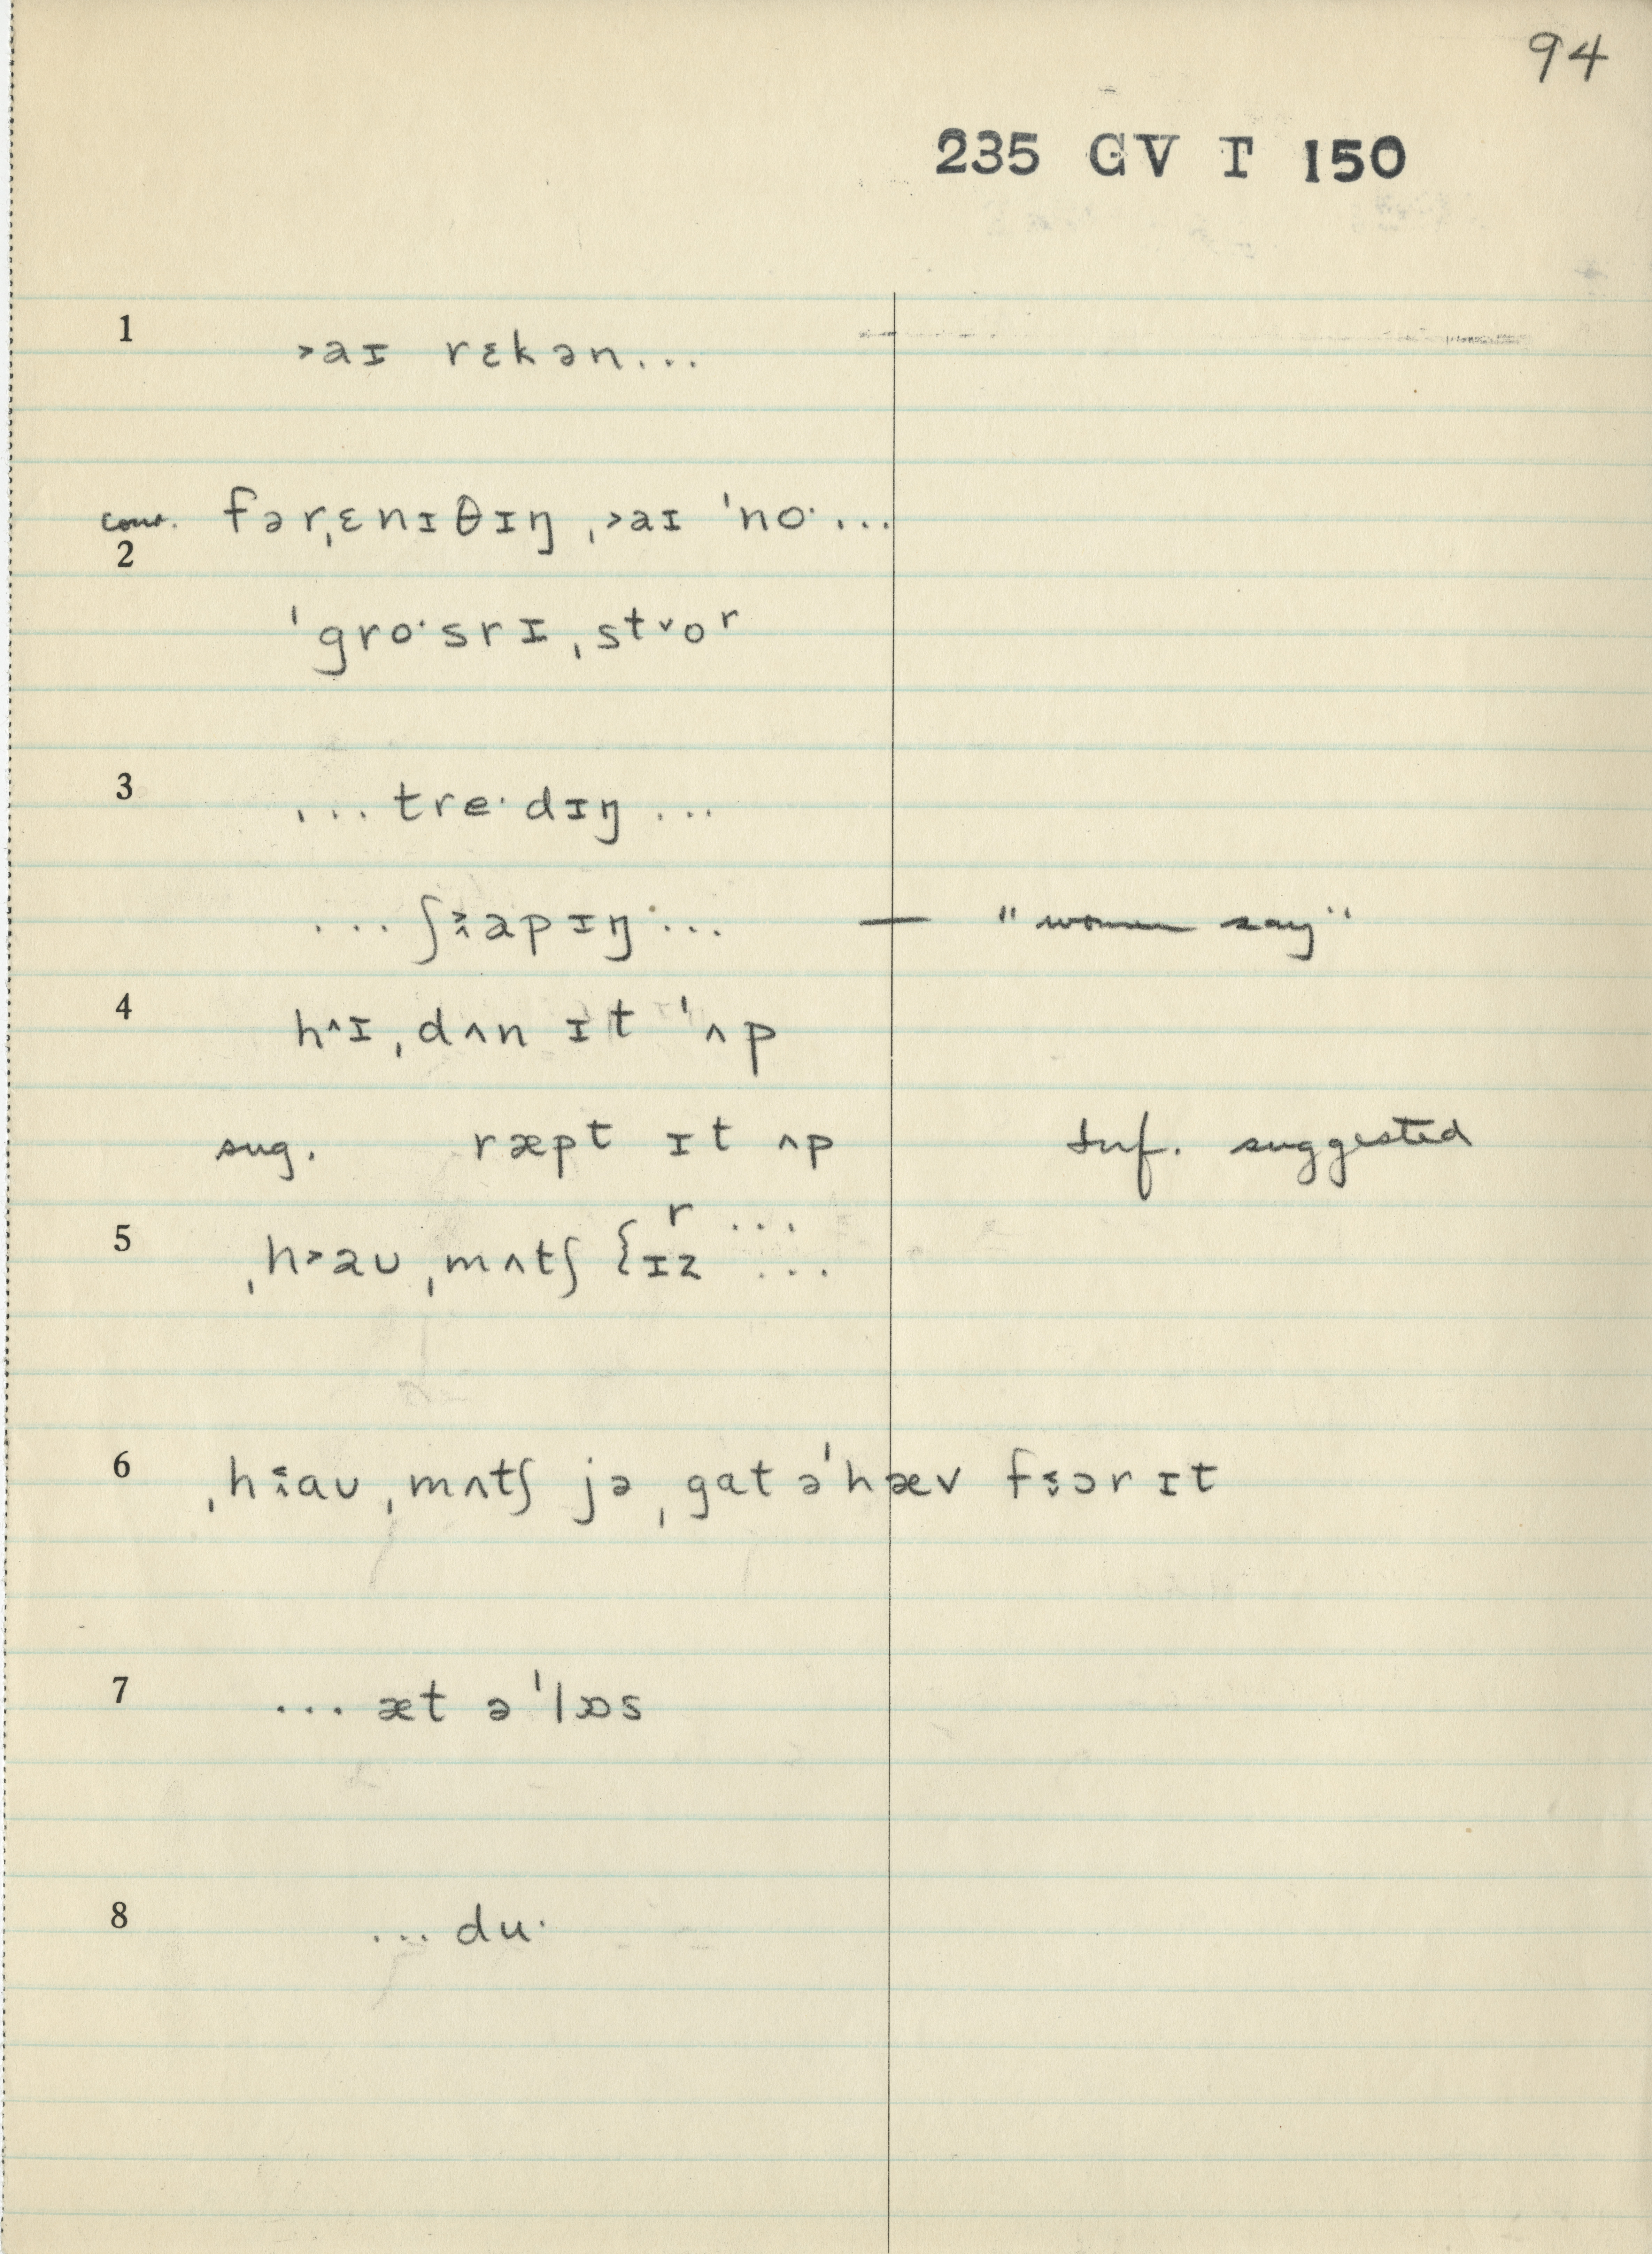 94
235 GV T 150
1 ˃aɪ rɛkən...
conv. fərˌɛnɪθɪŋ ˌ˃aɪ ˈno· ...
2
ˈgro·srɪ ˌst˅oʳ
3 ... tre·dɪŋ ...
... ʃ˄˃apɪŋ ... — "women say"
4 h^ɪ ˌdʌn ɪt ˈʌp
sug. ræpt ɪt ʌp Inf. suggested
r ...
5 ˌh˃aʊ ˌmʌtʃ {ɪz ...
6 ˌh˄˂aʊ ˌmʌtʃ jə ˌgat əˈhæv f˂˅ɔr ɪt
7 ... æt əˈlɒs
8 ... du·